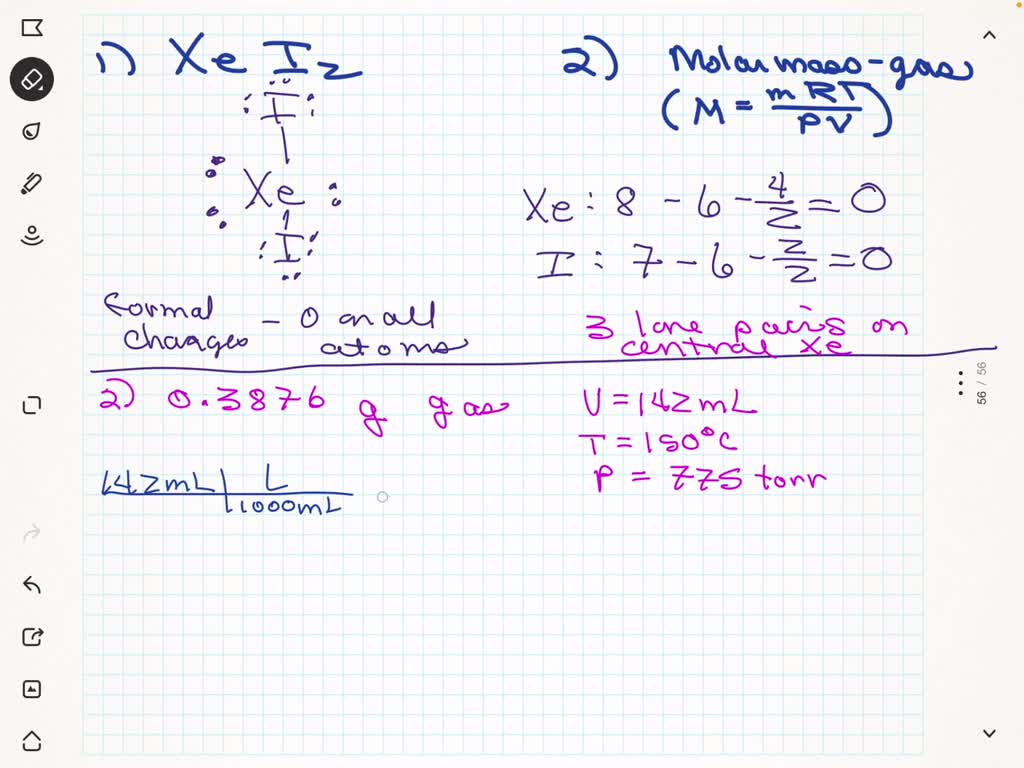 1) XeI2
2) Molar mass-gas
(M = mRT/PV)
I
Xe
I
Xe: 8 - 6 - 4/2 = 0
I: 7 - 6 - 2/2 = 0
formal charges - 0 on all atoms
3 lone pairs on
central Xe
2) 0.3876 g gas
V = 142 mL
T = 150°C
P = 775 torr
142 mL | L
1000 mL
56 / 56